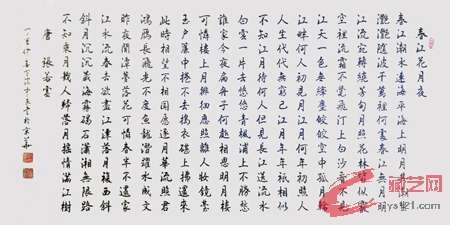 春江花月夜
春江潮水連海平海上明月共潮生
灩灩隨波千萬里何處春江無月明
江流宛轉繞芳甸月照花林皆似霰
空裡流霜不覺飛汀上白沙看不見
江天一色無纖塵皎皎空中孤月輪
江畔何人初見月江月何年初照人
人生代代無窮已江月年年祇相似
不知江月待何人但見長江送流水
白雲一片去悠悠青楓浦上不勝愁
誰家今夜扁舟子何處相思明月樓
可憐樓上月徘徊應照離人妝鏡臺
玉戶簾中捲不去搗衣砧上拂還來
此時相望不相聞願逐月華流照君
鴻雁長飛光不度魚龍潛躍水成文
昨夜閒潭夢落花可憐春半不還家
江水流春去欲盡江潭落月復西斜
斜月沉沉藏海霧碣石瀟湘無限路
不知乘月幾人歸落月搖情滿江樹
唐 張若虛
藏艺网